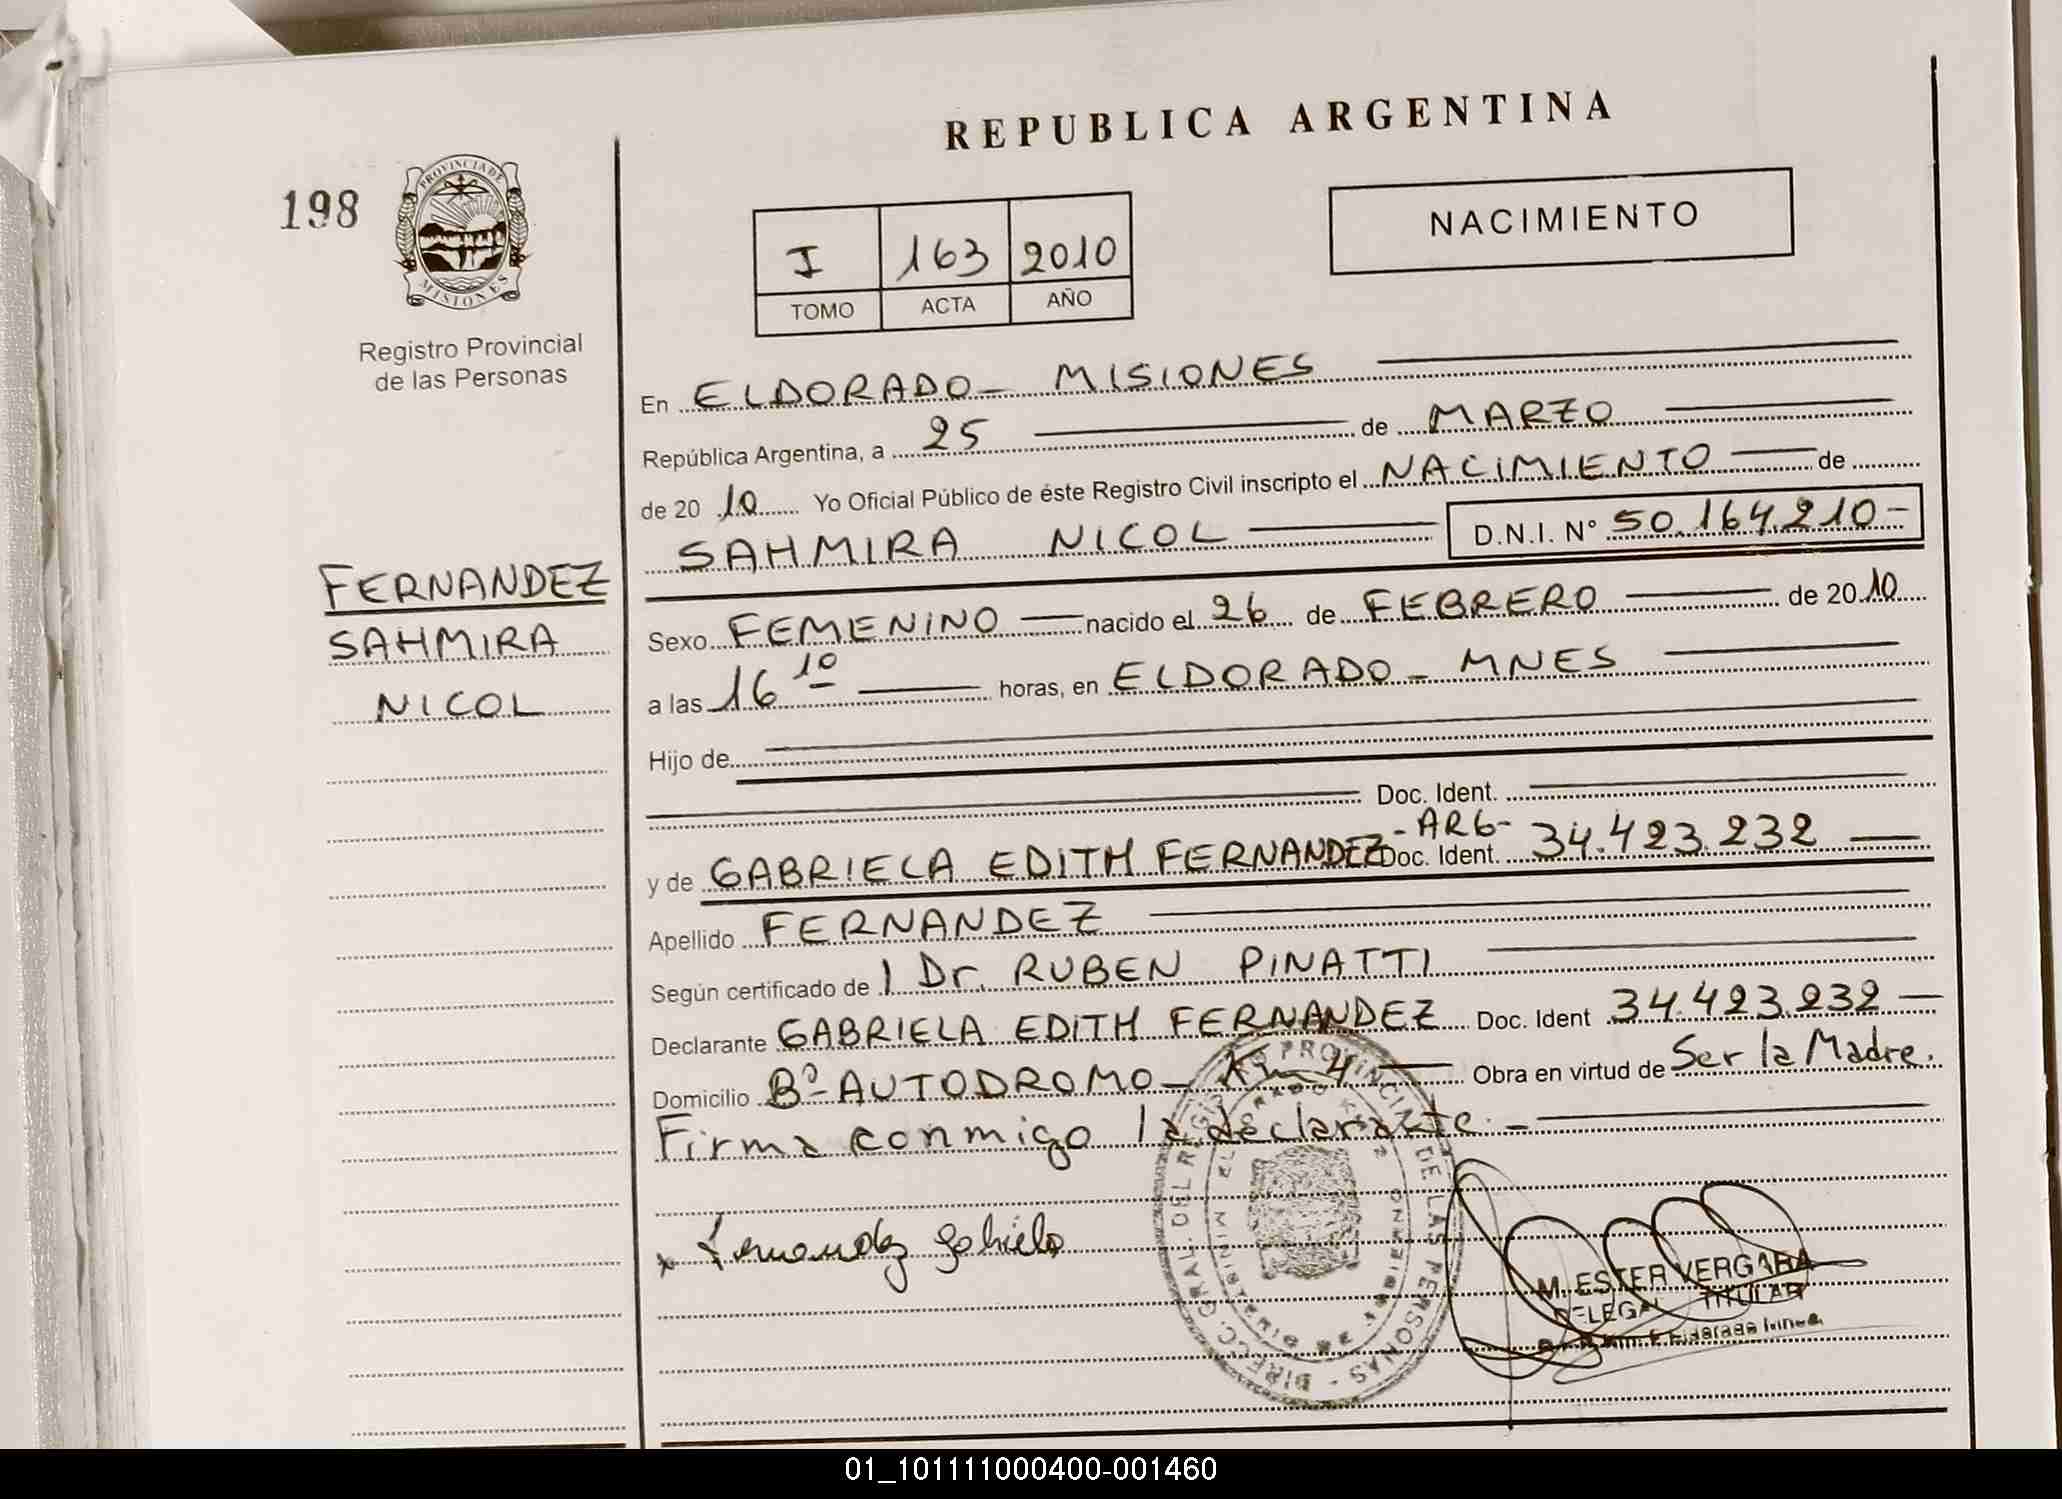 REPUBLICA ARGENTINA
198
PROVINCIA DE
MISIONES
Registro Provincial
de las Personas
NACIMIENTO
I 163 2010
TOMO ACTA AÑO
En ELDORADO - MISIONES
República Argentina, a 25 de MARZO
de 20 10 Yo Oficial Público de éste Registro Civil inscripto el NACIMIENTO de
SAHMIRA NICOL D.N.I. N° 50.164.210-
FERNANDEZ
SAHMIRA
NICOL
Sexo FEMENINO nacido el 26 de FEBRERO de 20 10
a las 16 10 horas, en ELDORADO - MNES
Hijo de
Doc. Ident.
y de GABRIELA EDITH FERNANDEZ -ARG- Doc. Ident. 34.423.232
Apellido FERNANDEZ
Según certificado de l Dr. RUBEN PINATTI
Declarante GABRIELA EDITH FERNANDEZ Doc. Ident 34.423.232
Domicilio Bº AUTODROMO - Km 4 Obra en virtud de Ser la Madre.
Firma conmigo la declarante. -
x Fernandez Gabriela
DIREC. GRAL. DEL REGISTRO PROVINCIAL DE LAS PERSONAS
M. ESTER VERGARA
TITULAR
01_101111000400-001460